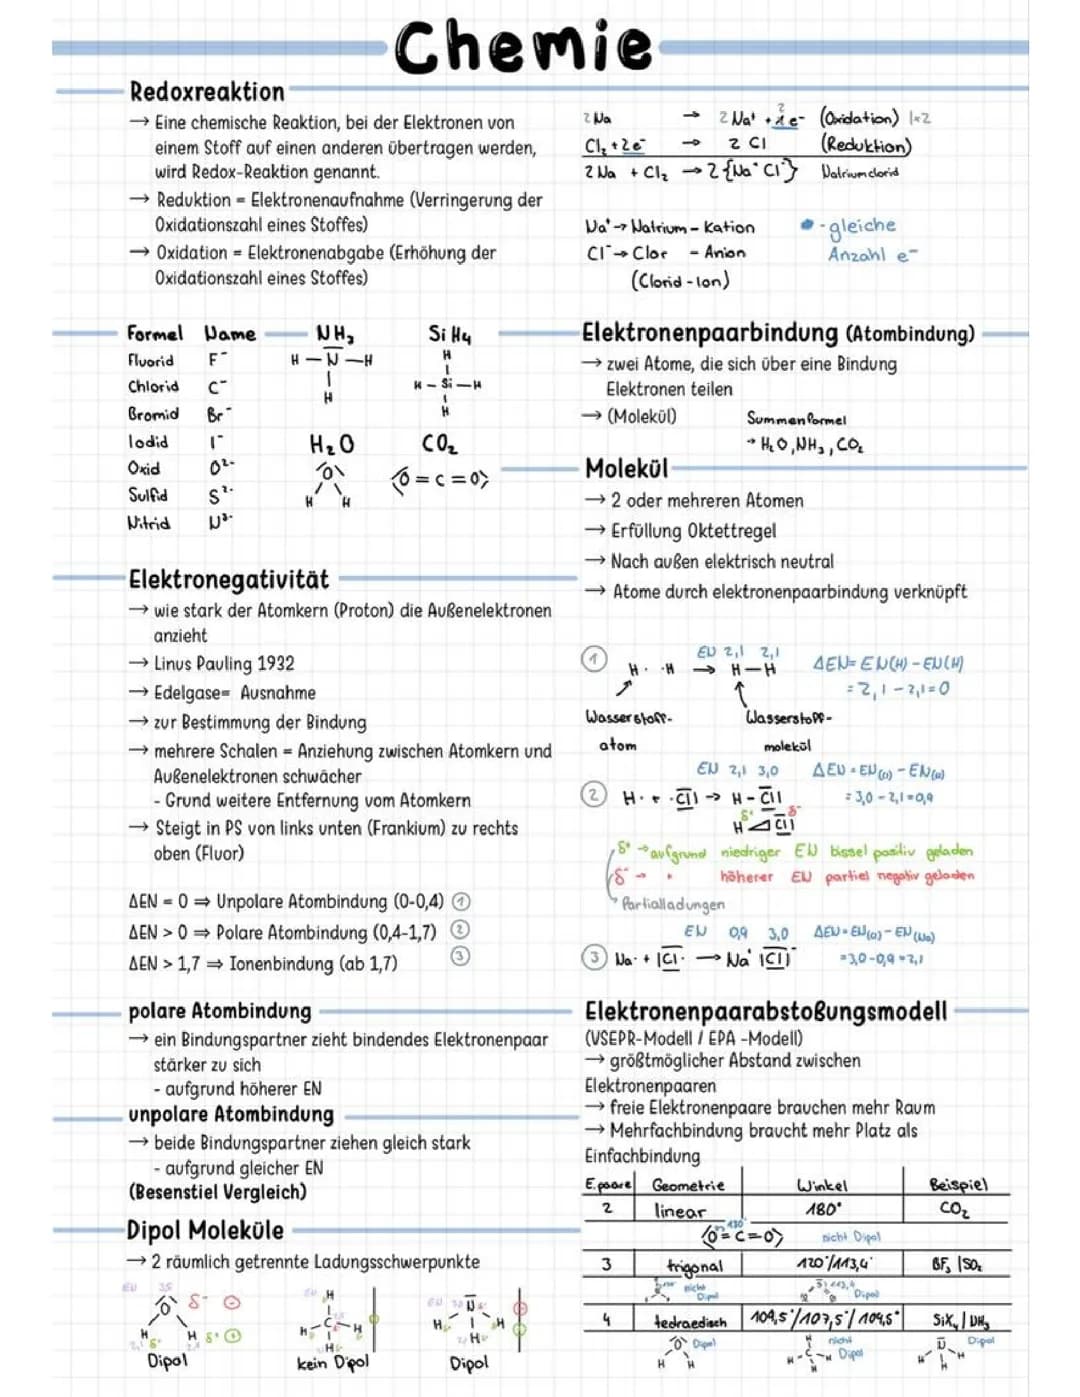 Chemie
Redoxreaktion
→ Eine chemische Reaktion, bei der Elektronen von
einem Stoff auf einen anderen übertragen werden,
wird Redox-Reaktion genannt.
→ Reduktion = Elektronenaufnahme (Verringerung der
Oxidationszahl eines Stoffes)
→ Oxidation = Elektronenabgabe (Erhöhung der
Oxidationszahl eines Stoffes)
2 Na → 2 Na⁺ + 2 e⁻ (Oxidation) |×2
Cl₂ + 2e⁻ → 2 Cl (Reduktion)
2 Na + Cl₂ → 2 {Na⁺Cl⁻} Natriumclorid
Na⁺ → Natrium - Kation
Cl⁻ → Clor - Anion
(Clorid - Ion)
- gleiche
Anzahl e⁻
Formel Name
Fluorid F⁻
Chlorid C⁻
Bromid Br⁻
Iodid I⁻
Oxid O²⁻
Sulfid S²⁻
Nitrid N³⁻
NH₃
H - N - H
H
SiH4
H
H - Si - H
H
H₂O
O
H H
CO₂
O = C = O
Elektronenpaarbindung (Atombindung)
→ zwei Atome, die sich über eine Bindung
Elektronen teilen
→ (Molekül)
Summenformel
→ H₂O, NH₃, CO₂
Molekül
→ 2 oder mehreren Atomen
→ Erfüllung Oktettregel
→ Nach außen elektrisch neutral
→ Atome durch elektronenpaarbindung verknüpft
Elektronegativität
→ wie stark der Atomkern (Proton) die Außenelektronen
anzieht
→ Linus Pauling 1932
→ Edelgase= Ausnahme
→ zur Bestimmung der Bindung
→ mehrere Schalen = Anziehung zwischen Atomkern und
Außenelektronen schwächer
- Grund weitere Entfernung vom Atomkern
→ Steigt in PS von links unten (Frankium) zu rechts
oben (Fluor)
ΔEN = 0 ⇒ Unpolare Atombindung (0-0,4) ①
ΔEN > 0 ⇒ Polare Atombindung (0,4-1,7) ②
ΔEN > 1,7 ⇒ Ionenbindung (ab 1,7) ③
EN 2,1 2,1
① H· ·H → H-H ΔEN= EN(H) - EN(H)
= 2,1 - 2,1 = 0
Wasserstoff-
atom
Wasserstoff-
molekül
EN 2,1 3,0 ΔEN = EN(Cl) - EN(H)
② H· + ·Cl| → H - Cl| = 3,0 - 2,1 = 0,9
δ⁺ δ⁻
H Cl|
δ⁺ → aufgrund niedriger EN bissel positiv geladen
δ⁻ → " höherer EN partiel negativ geladen
Partialladungen
EN 0,9 3,0 ΔEN = EN(Cl) - EN(Na)
③ Na· + |Cl· → Na⁺ |Cl|⁻ = 3,0 - 0,9 = 2,1
polare Atombindung
→ ein Bindungspartner zieht bindendes Elektronenpaar
stärker zu sich
- aufgrund höherer EN
unpolare Atombindung
→ beide Bindungspartner ziehen gleich stark
- aufgrund gleicher EN
(Besenstiel Vergleich)
Dipol Moleküle
→ 2 räumlich getrennte Ladungsschwerpunkte
EN 3,5
O δ⁻ ⊖
H H δ⁺ ⊕
Dipol
H
H-C-H
H
kein Dipol
EN 3,0 N
H H
H
Dipol
Elektronenpaarabstoßungsmodell
(VSEPR-Modell / EPA -Modell)
→ größtmöglicher Abstand zwischen
Elektronenpaaren
→ freie Elektronenpaare brauchen mehr Raum
→ Mehrfachbindung braucht mehr Platz als
Einfachbindung
E.paare Geometrie Winkel Beispiel
2 linear 180° CO₂
180°
O = C = O nicht Dipol
3 trigonal 120°/113,4° BF₃ |SO₂
nicht
Dipol
S 113,4
Dipol
4 tedraedisch 109,5°/107,5°/104,5° SiX₄ | NH₃
O Dipol
H H
H
H-C-H
H
nicht
Dipol
N Dipol
H H
H